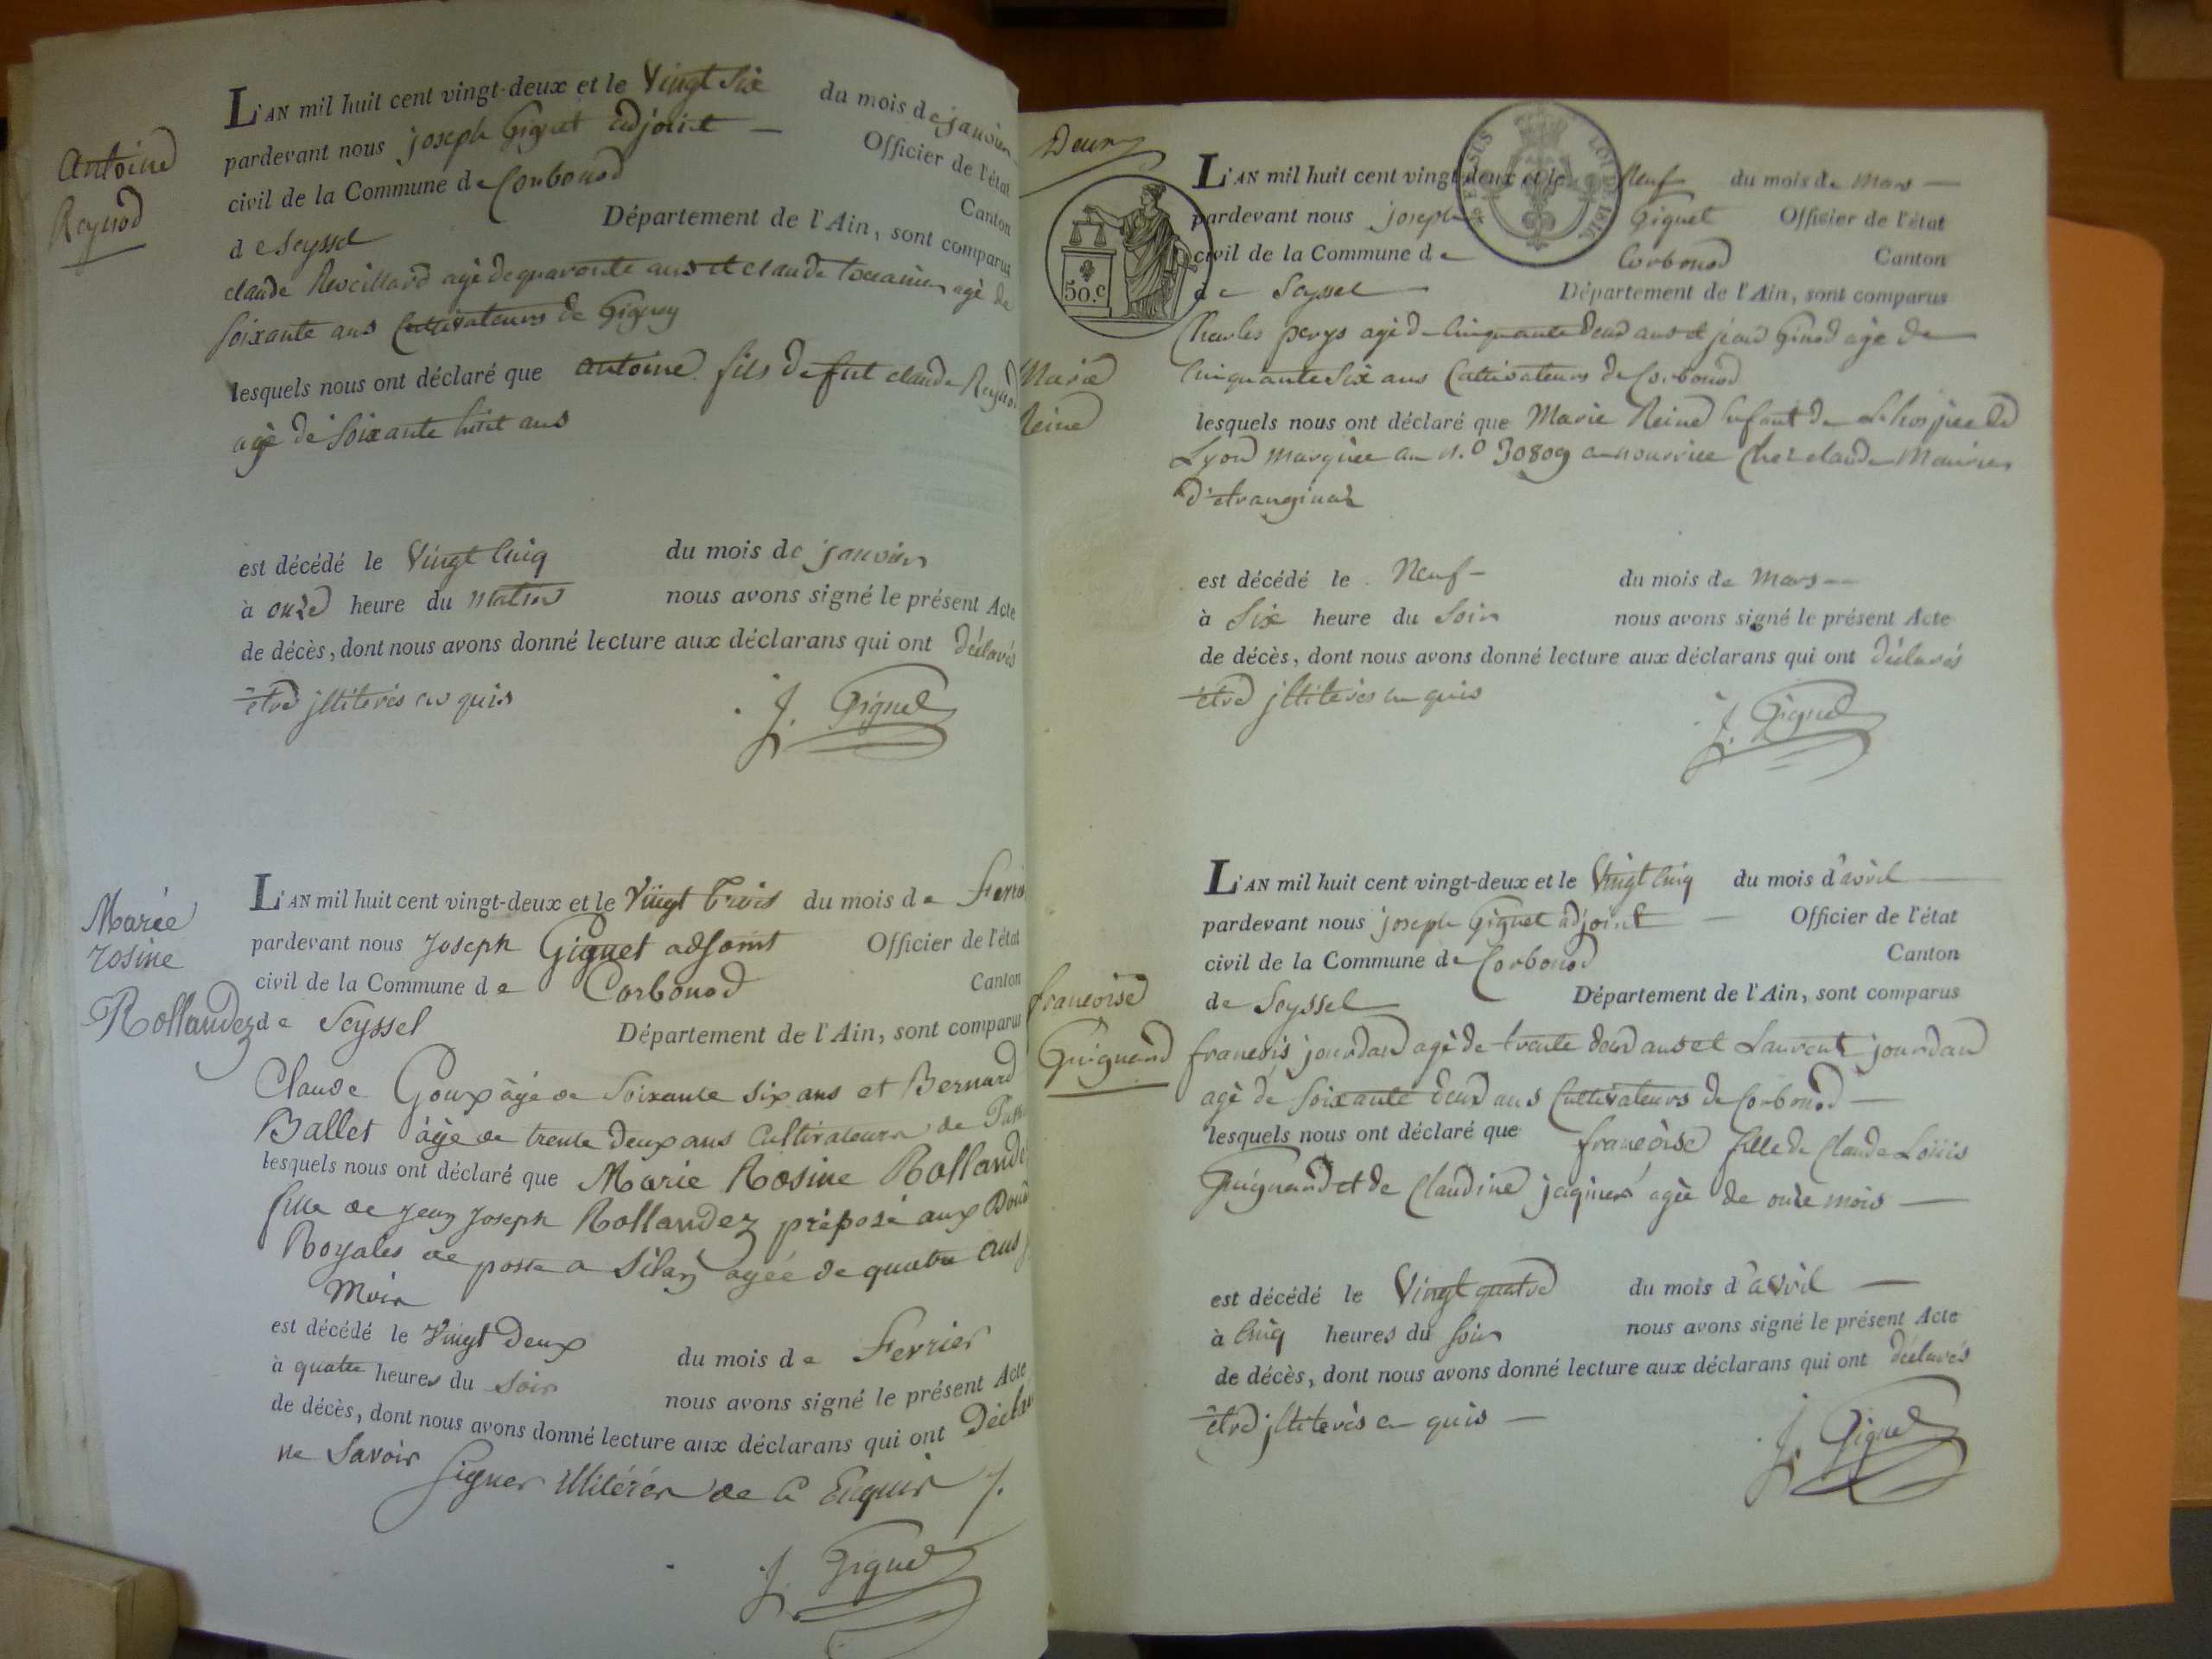 Antoine
Reynod
L'AN mil huit cent vingt-deux et le Vingt Six du mois de janvier
pardevant nous joseph Giguet adjoint — Officier de l'état
civil de la Commune de Corbonod Canton
de Seyssel Département de l'Ain, sont comparus
claude agé de quarante ans et claude agé de
soixante ans Cultivateurs de Gignez
lesquels nous ont déclaré que antoine fils de fut claude Reynod
agé de soixante huit ans
est décédé le Vingt Cinq du mois de janvier
à onze heure du Matin nous avons signé le présent Acte
de décès, dont nous avons donné lecture aux déclarans qui ont déclarés
être jlliterés en quis
J. Giguet
Marie
rosine
Rollandez
L'AN mil huit cent vingt-deux et le Vingt Trois du mois de Fevrie
pardevant nous Joseph Giguet adjoint Officier de l'état
civil de la Commune de Corbonod Canton
de Seyssel Département de l'Ain, sont comparus
Claude Goux âgé de Soixante Six ans et Bernard
Ballet âgé de trente deux ans Cultivateurs de
lesquels nous ont déclaré que Marie Rosine Rollande
fille de Jean Joseph Rollandez préposé aux Doua
Royales de poste a Silan agée de quatre ans
Mois
est décédé le Vingt Deux du mois de Fevrier
à quatre heures du Soir nous avons signé le présent Acte
de décès, dont nous avons donné lecture aux déclarans qui ont Déclar
ne Savoir Signer illitérés de ce Enquis /.
J. Giguet
Deux
50.c
LOUIS XVIII
L'AN mil huit cent vingt-deux et le Neuf du mois de Mars —
pardevant nous joseph Giguet Officier de l'état
civil de la Commune de Corbonod Canton
de Seyssel Département de l'Ain, sont comparus
Marie
Reine
Charles perys agé de Cinquante deux ans et jean Ginod agé de
Cinquante Six ans Cultivateurs de Corbonod
lesquels nous ont déclaré que Marie Reine enfant de L'hospice de
Lyon marquée au N.o 30809 en nourrice Chez claude
d'etranginaz
est décédé le Neuf — du mois de Mars —
à Six heure du Soir nous avons signé le présent Acte
de décès, dont nous avons donné lecture aux déclarans qui ont déclarés
être jlliterés en quis
J. Giguet
francoise
Guignard
L'AN mil huit cent vingt-deux et le Vingt Cinq du mois d'avril —
pardevant nous joseph Giguet adjoint — Officier de l'état
civil de la Commune de Corbonod Canton
de Seyssel Département de l'Ain, sont comparus
francois jourdan agé de trente deux ans et Laurent jourdan
agé de soixante deux ans Cultivateurs de Corbonod —
lesquels nous ont déclaré que francoise fille de Claude Louis
Guignard et de Claudine agée de onze mois —
est décédé le Vingt quatre du mois d'avril —
à Cinq heures du Soir nous avons signé le présent Acte
de décès, dont nous avons donné lecture aux déclarans qui ont déclarés
être jlliterés en quis —
J. Giguet